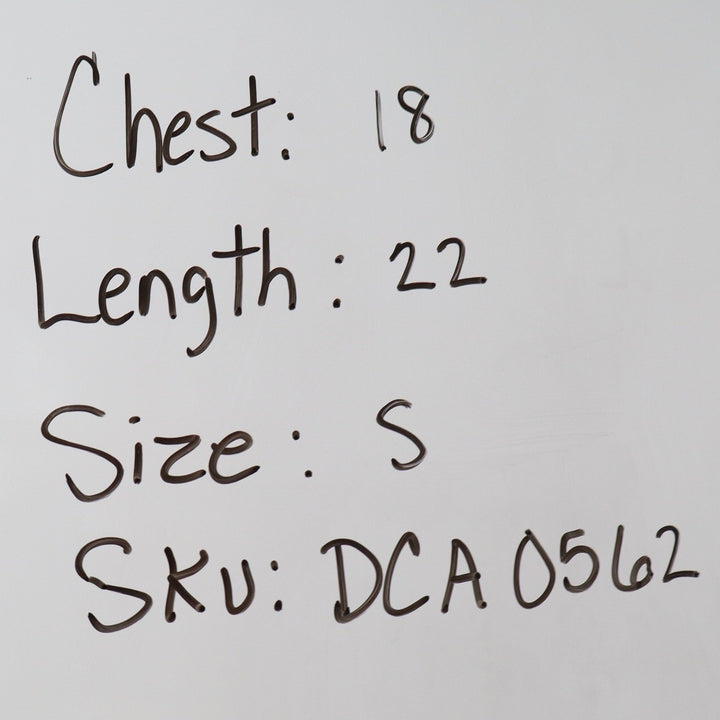 Chest: 18
Length: 22
Size: S
SKU: DCA0562